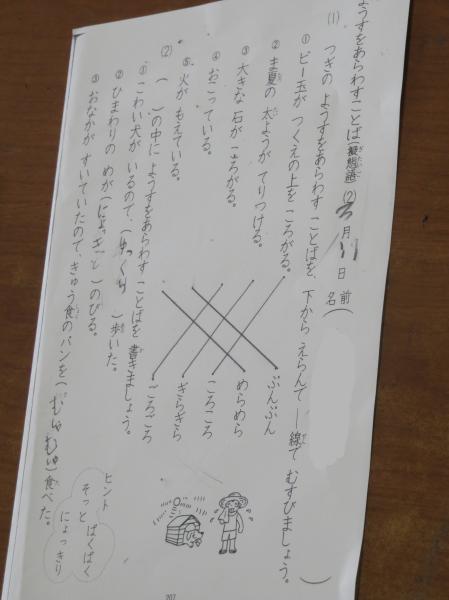 ようすをあらわすことば(擬態語)(2) 3月11日 名前( )
(1) つぎの ようすをあらわす ことばを、下から えらんで ―線で むすびましょう。
① ビー玉が つくえの上を ころがる。
② ま夏の 太ようが てりつける。
③ 大きな 石が ころがる。
④ おこっている。
⑤ 火が もえている。
ぷんぷん
めらめら
ころころ
ぎらぎら
ごろごろ
(2) ( )の中に ようすをあらわす ことばを 書きましょう。
① こわい犬が いるので、(ゆっくり)歩いた。
② ひまわりの めが(にょっきっと)のびる。
③ おなかが すいていたので、きゅう食のパンを(むしゃむしゃ)食べた。
ヒント
ぱくぱく
そっと
にょっきり
207